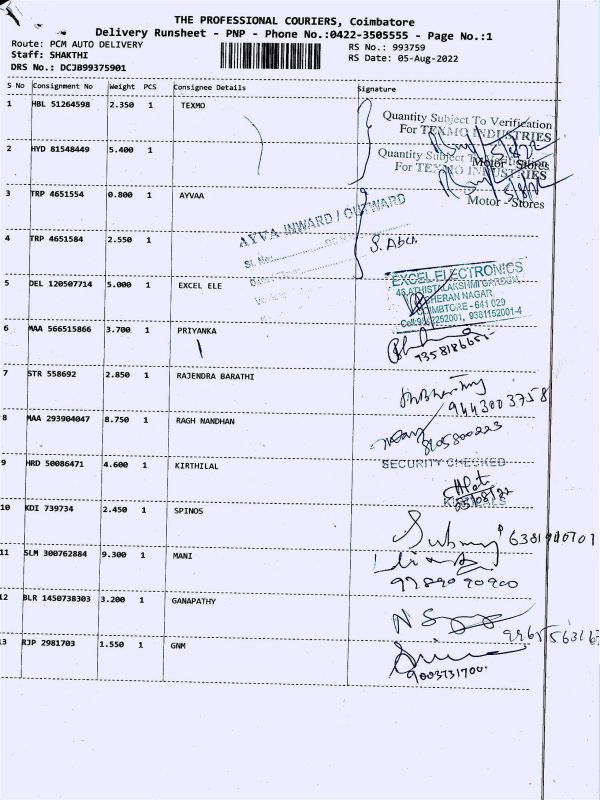 THE PROFESSIONAL COURIERS, Coimbatore
Delivery Runsheet - PNP - Phone No.:0422-3505555 - Page No.:1
Route: PCM AUTO DELIVERY
RS No.: 993759
Staff: SHAKTHI
RS Date: 05-Aug-2022
DRS No.: DCJB99375901
S No Consignment No Weight PCS Consignee Details Signature
1 HBL 51264598 2.350 1 TEXMO
Quantity Subject To Verification
For TEXMO INDUSTRIES
Motor Stores
2 HYD 81548449 5.400 1
Quantity Subject
For TEXMO INDUSTRIES
Motor Stores
3 TRP 4651554 0.800 1 AYVAA
AYVA INWARD / OUTWARD
Sl. No:
4 TRP 4651584 2.550 1
S. Abu
5 DEL 120507714 5.000 1 EXCEL ELE
EXCEL ELECTRONICS
CHERAN NAGAR,
COIMBTORE - 641 029
6 MAA 566515866 3.700 1 PRIYANKA
7 STR 558692 2.850 1 RAJENDRA BARATHI
9443003758
8 MAA 293904047 8.750 1 RAGH NANDHAN
9 HRD 50086471 4.600 1 KIRTHILAL
SECURITY CHECKED
10 KDI 739734 2.450 1 SPINOS
11 SLM 300762884 9.300 1 MANI
12 BLR 1450738303 3.200 1 GANAPATHY
13 RJP 2981703 1.550 1 GNM
9003731700